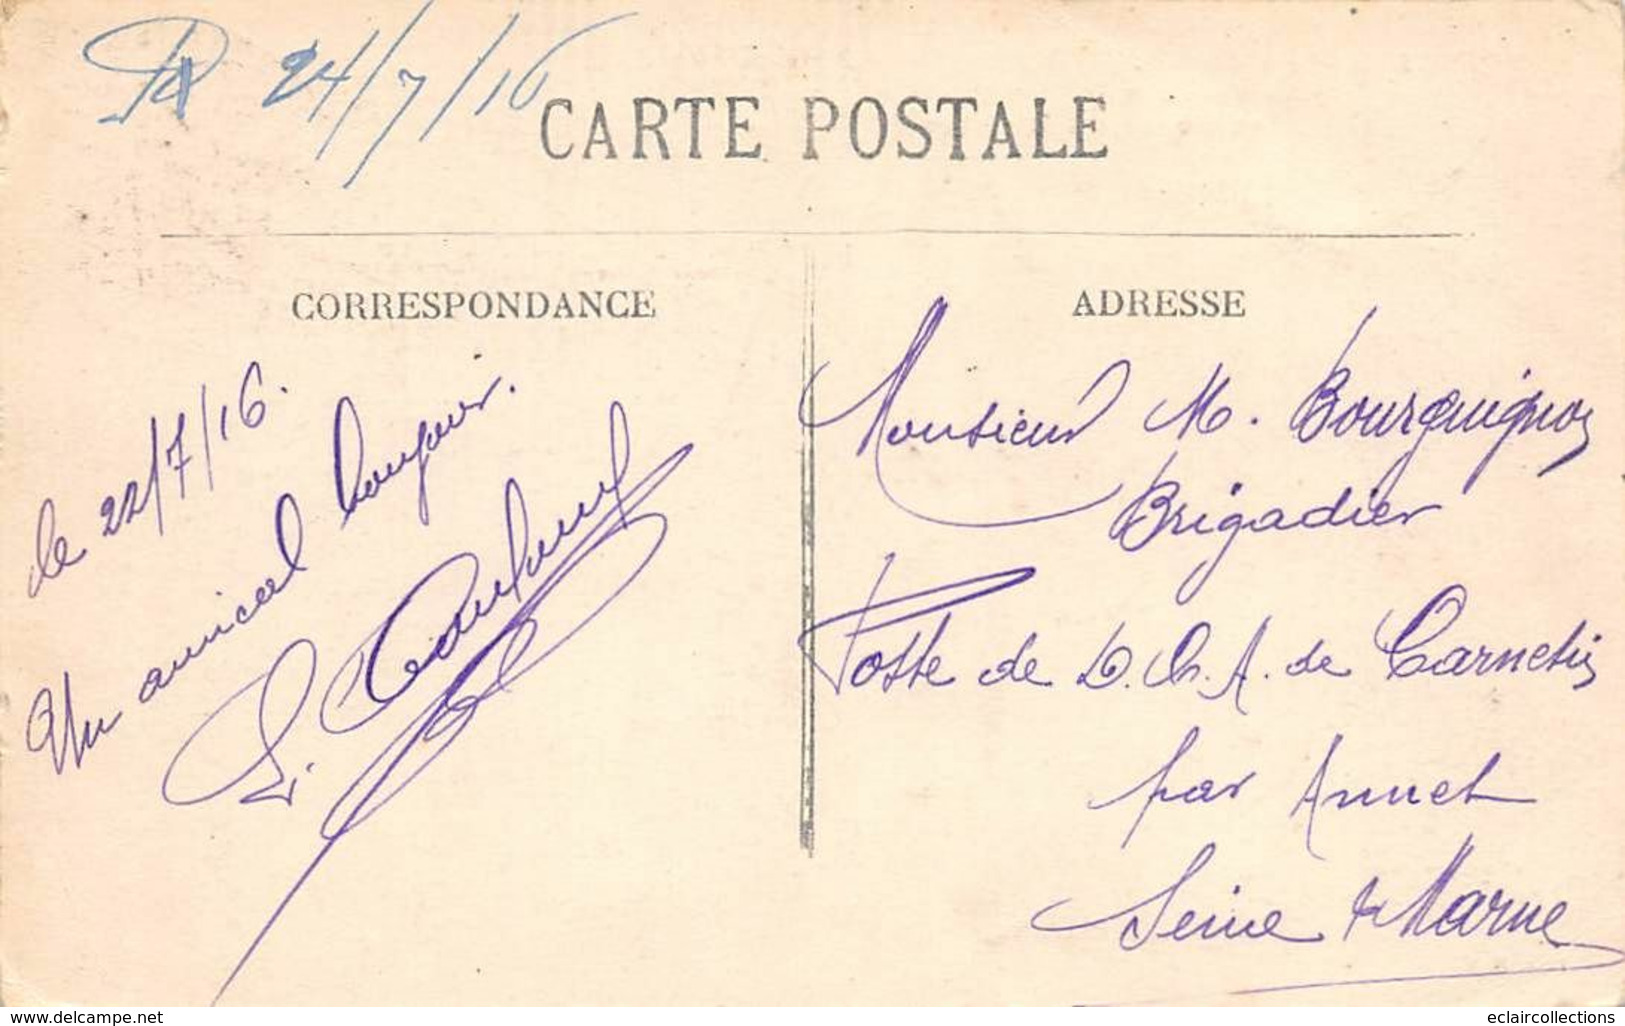 24/7/16
CARTE POSTALE
CORRESPONDANCE
le 22/7/16.
Un amical bonjour.
ADRESSE
Monsieur M. Bourguignon
Brigadier
Poste de D.C.A. de Carnetin
par Annet
Seine & Marne
www.delcampe.net
eclaircollections